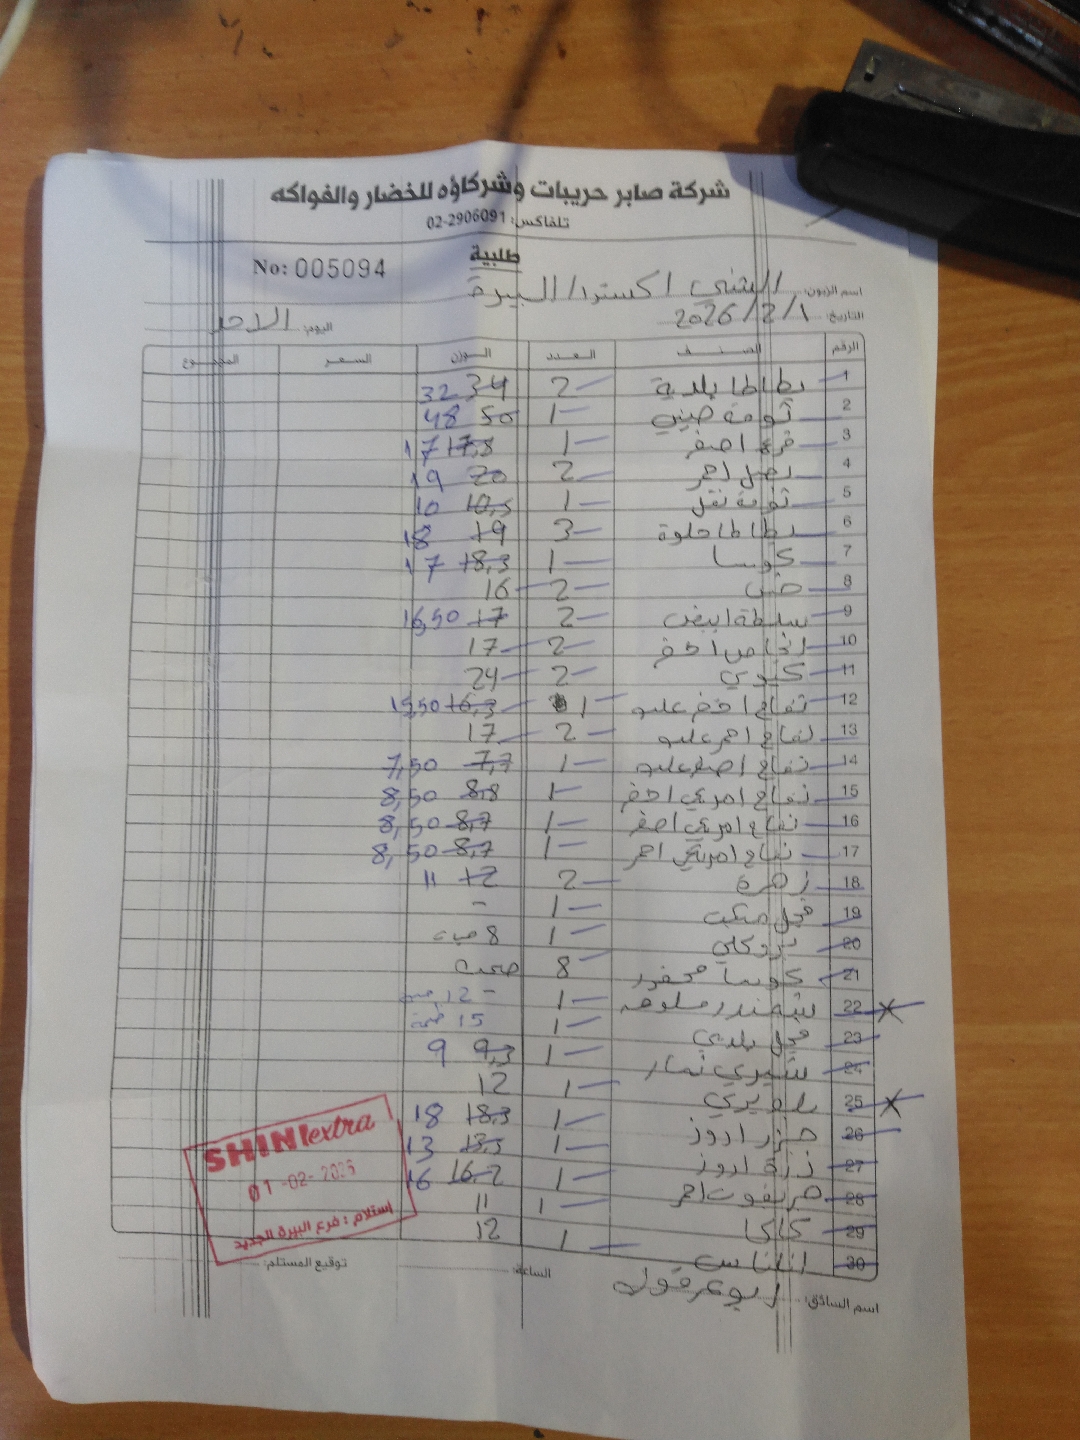 شركة صابر حريبات وشركاؤه للخضار والفواكه
تلفاكس: 02-2906091
طلبية
No: 005094
اسم الزبون: الشني اكسترا/البيرة
التاريخ: 2026/2/1 اليوم: الاحد
الرقم الصنف العدد الوزن السعر المجموع
1 بطاطا بلدية 2 34 32
2 ثومة صيني 1 50 48
3 قرع اصفر 1 17,8 17
4 بصل احمر 2 20 19
5 ثومة نقل 1 10,5 10
6 بطاطا حلوة 3 19 18
7 كوسا 1 18,3 17
8 خس 2 16
9 سلطة ابيض 2 17 16,50
10 اخضر 2 17
11 كيوي 2 24
12 تفاح اخضر علبه 1 16,3 15,50
13 تفاح احمر علبه 2 17
14 تفاح اصفر علبه 1 7,7 7,50
15 تفاح امريكي اخضر 1 8,8 8,50
16 تفاح امريكي اصفر 1 8,7 8,50
17 تفاح امريكي احمر 1 8,7 8,50
18 زهرة 2 12 11
19 فجل 1 -
20 بروكلي 1 8 حبات
21 كوسا محفور 8 صحن
22 شمندر مسلوق 1 - 12
23 فجل بلدي 1 15
24 شيري تمار 1 9,3 9
25 بلوبيري 1 12
26 جزر اروز 1 18,3 18
27 ذرة اروز 1 13,5 13
28 جريفوت احمر 1 16,2 16
29 كاكا 1 11
30 اناناس 1 12
SHINI extra
01-02-2026
استلام: فرع البيرة الجديد
اسم السائق: ابو عمر الساعة: توقيع المستلم: